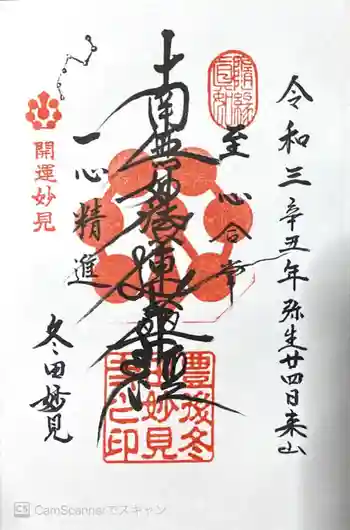 令和三辛丑年弥生廿四日来山
至心合掌
南無妙法蓮華経
一心精進
開運妙見
冬田妙見
豊後冬
田妙見
之印
CS CamScannerでスキャン